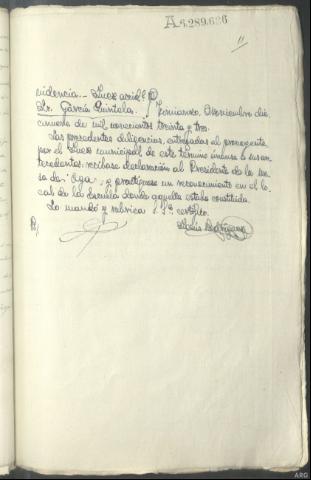 A4.289.636
11
videncia.- Juez accidl.
Sr. García Quintela. Fernanroz, Noviembre die
cinueve de mil novecientos treinta y tres.
Las precedentes diligencias, entregadas al proveyente
por el Juez municipal de este término únanse a sus an
tecedentes: recíbase declaración al Presidente de la me
sa de y practíquese un reconocimiento en el lo
cal de la Escuela donde aquella estaba constituida.
Lo mandó y rubrica S. Sª. certifico.
ARG